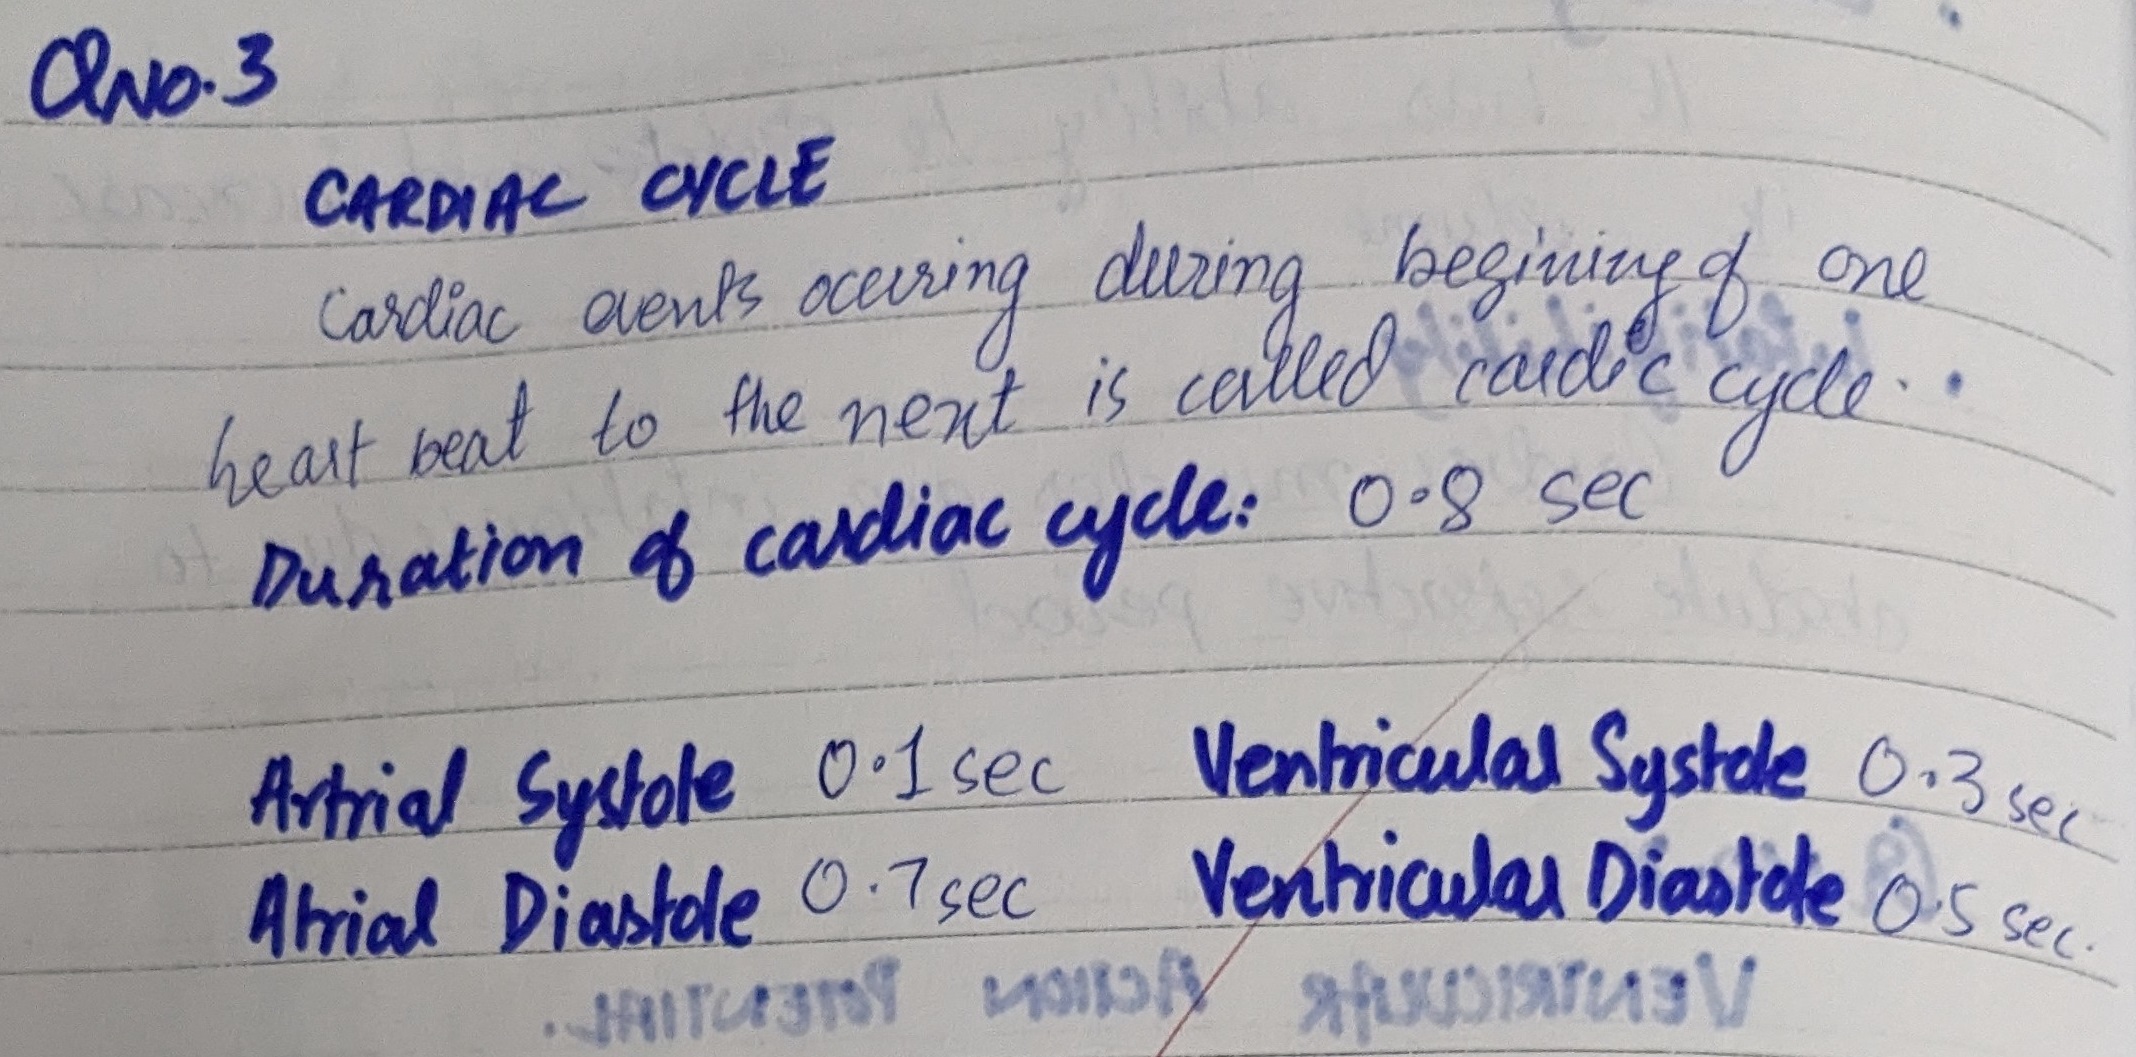 QNO.3
CARDIAC CYCLE
Cardiac events occuring during begining of one
heart beat to the next is called cardic cycle.
Duration of cardiac cycle: 0.8 sec
Artrial Systole 0.1 sec Ventricular Systole 0.3 sec
Atrial Diastole 0.7 sec Ventricular Diastole 0.5 sec.
VENTRICULAR ACTION POTENTIAL.